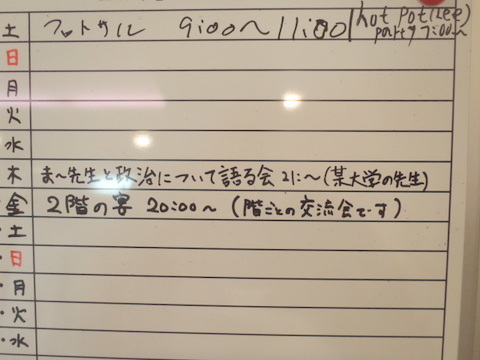 土 フットサル 9:00～11:00 hot pot(Lee)
party 7:00～
日
月
火
水
木 ま～先生と政治について語る会 21:～(某大学の先生)
金 2階の宴 20:00～ (階ごとの交流会です)
・土
・日
・月
・火
・水